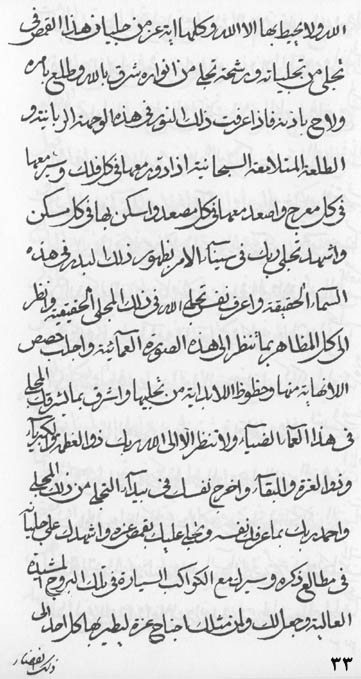 الله ولا يحيط بها الا الله وكلها اية عز من جلبابى هذا القمص فى
تجلى من تجلياته ورشحة تجلى من انواره شرق بالله وطلع بامره
ولاح باذنه فاذا عرفت ذلك النور فى هذه الوجهة الربانية و
الطلعة المتلامعة السبحانية اذا دور معها فى كل فلك وسير معها
فى كل معرج واصعد معها فى كل مصعد واسكن بها فى كل مسكن
واشهد تجلى ربك فى سيناء الامر بظهور ذلك البدر فى هذه
السماء الحقيقة واعرف نفس تجلى الله فى ذلك المجلى الحقيقية وانظر
الى كل المظاهر بما تنظر الى هذه الصورة العمائية واجلب حصص
اللانهاية منها وحظوظ اللابداية من تجليها واشرق بما اشرقك المجلى
فى هذا العماء الضياء ولا تنظر الا الى الله ربك ذو العظمة والكبرياء
وذو العزة والبقاء واخرج نفسك فى بيداء التجلى من ذلك المجلى
واحمد ربك بما عرفك نفسه وتجلى عليك بقمص عزه واشهدك على جلباب
فى مطالع ذكره وسيرك مع الكواكب السيارة فى تلك البروج المشيدة
العالية وجعل لك ولمن مثلك اجناح عزة ليطير بها كل احد الى
ذلك الفضاء
٣٣